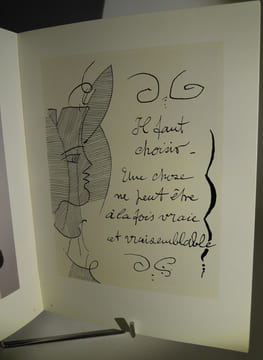 Il faut
choisir -
Une chose
ne peut être
à la fois vraie
et vraisemblable